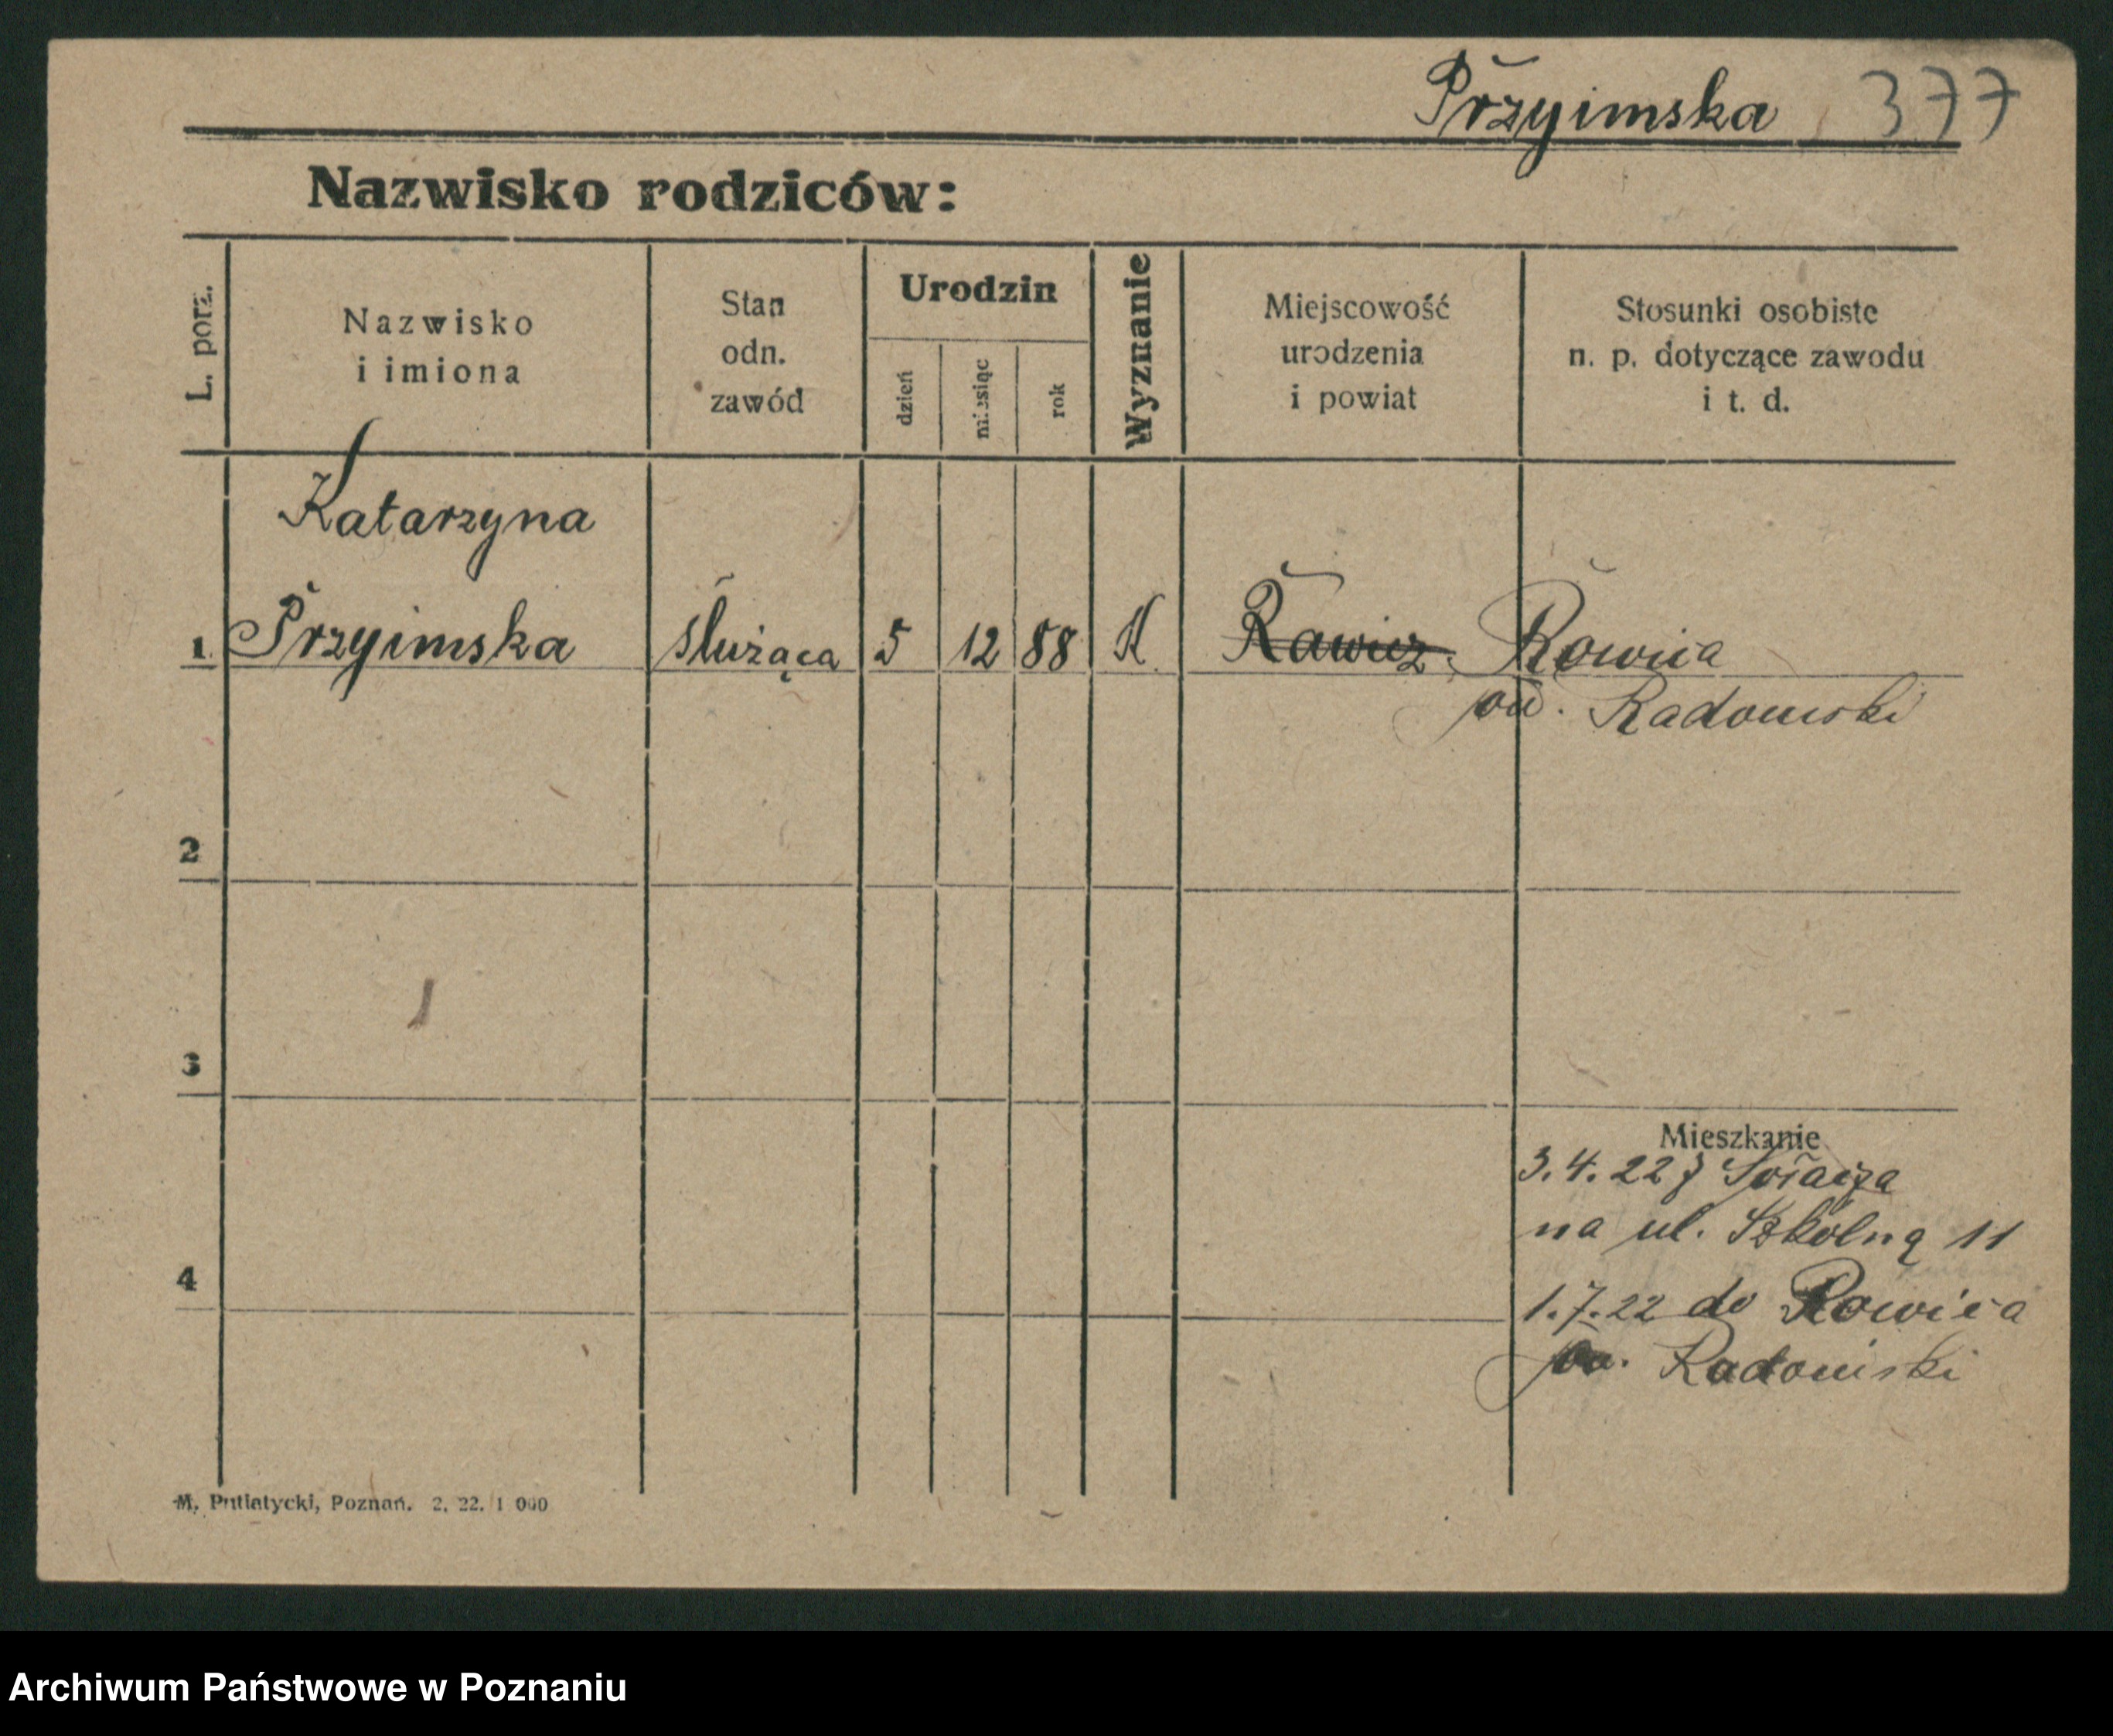 Przyimska 377
Nazwisko rodziców:
L. porz.
Nazwisko
i imiona
Stan
odn.
zawód
Urodzin
dzień
miesiąc
rok
Wyznanie
Miejscowość
urodzenia
i powiat
Stosunki osobiste
n. p. dotyczące zawodu
i t. d.
Katarzyna
1 Przyimska służąca 5 12 88 K Rawicz
Radomski
2
3
Mieszkanie
3.4.22 z Sołacza
na ul. Szkolną 11
4
1.7.22 do
Radomski
M. Putiatycki, Poznań. 2. 22. 1 000
Archiwum Państwowe w Poznaniu